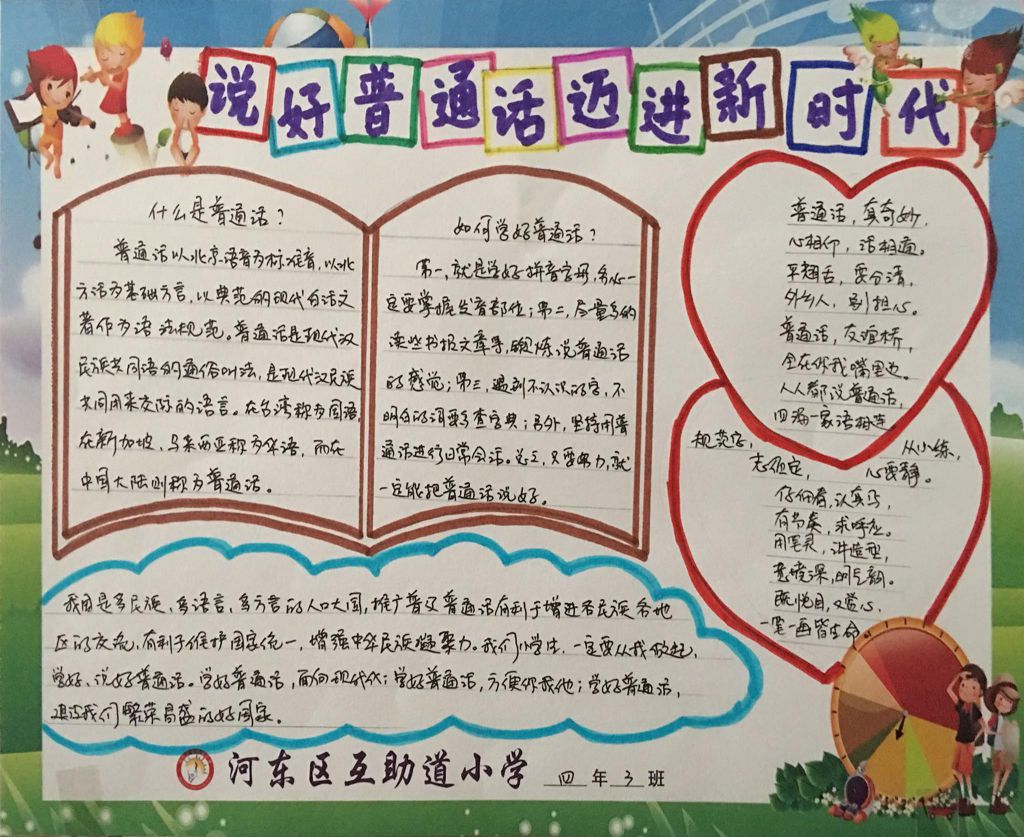 说好普通话迈进新时代
什么是普通话？
普通话以北京语音为标准音，以北
方话为基础方言，以典范的现代白话文
著作为语法规范。普通话是现代汉
民族共同语的通俗叫法，是现代汉民族
共同用来交际的语言。在台湾称为国语，
在新加坡、马来西亚称为华语，而在
中国大陆则称为普通话。
如何学好普通话？
第一，就是学好拼音字母，务必一
定要掌握发音部位；第二，尽量多的
读些书报文章等，锻炼说普通话
的感觉；第三，遇到不认识的字，不
明白的词要多查字典；另外，坚持用普
通话进行日常会话。总之，只要努力，就
一定能把普通话说好。
普通话，真奇妙，
心相印，话相通。
平翘舌，要分清，
外乡人，别担心。
普通话，友谊桥，
全在你我嘴里边。
人人都说普通话，
四海一家语相连
规范字，从小练，
志但定，心要静。
仔细看，认真写，
有节奏，求呼应。
用笔灵，讲造型，
既悦目，又赏心，
一笔一画皆生命。
我国是多民族、多语言、多方言的人口大国，推广普及普通话有利于增进各民族各地
区的交流，有利于维护国家统一，增强中华民族凝聚力。我们小学生，一定要从我做起，
学好、说好普通话。学好普通话，面向现代化；学好普通话，方便你我他；学好普通话，
建设我们繁荣昌盛的好国家。
河东区互助道小学 四年3班